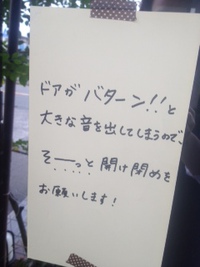 ドアが バターン!!と
大きな音を出してしまうので、
そーーっと 開け閉めを
お願いします!